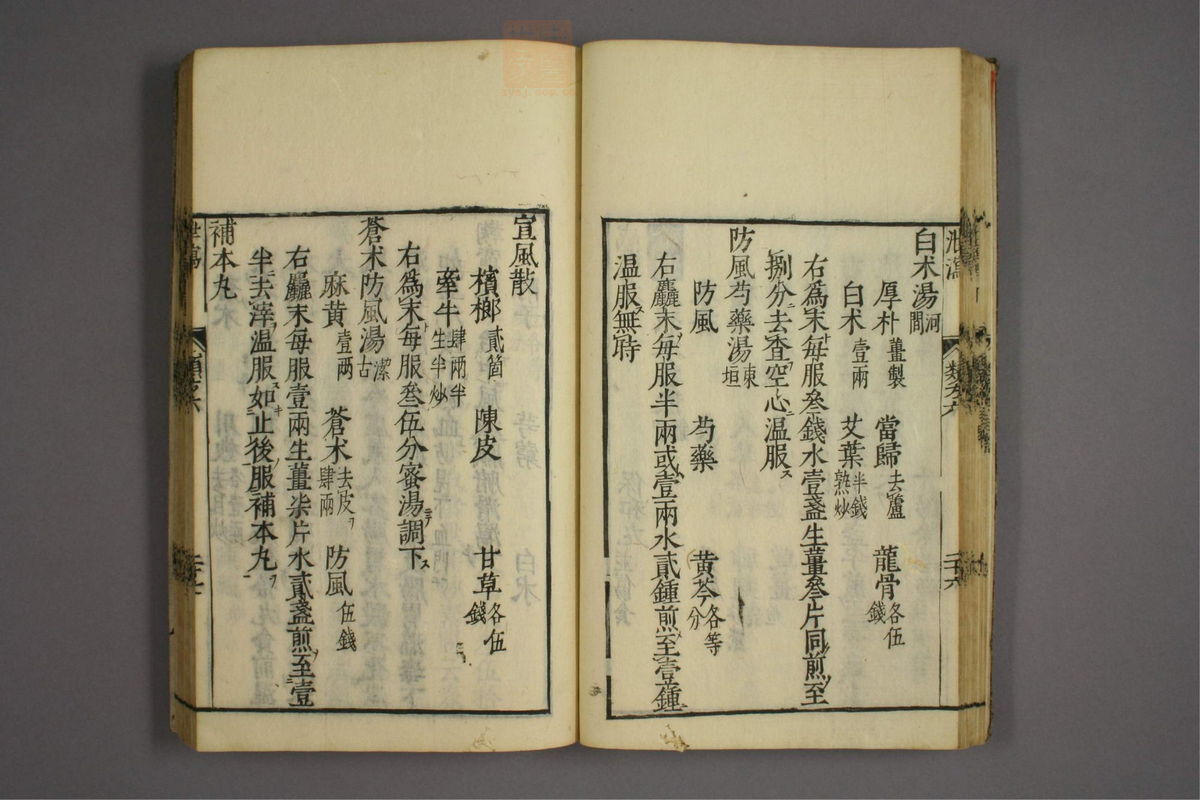 白朮湯河間
厚朴薑製　當歸去蘆　龍骨各伍錢
白朮壹兩　艾葉半錢熟炒
右爲末每服叄錢水壹盞生薑叄片同煎至
捌分去査空心温服ス
防風芍藥湯東垣
防風　芍藥　黄芩各等分
右麤末每服半兩或壹兩水貳鍾煎至壹鍾
温服無時
宣風散
檳榔貳箇　陳皮　甘草各伍錢
牽牛肆兩半生半炒
右爲末每服叄伍分蜜湯調下ス
蒼朮防風湯潔古
麻黄壹兩　蒼朮去皮肆兩　防風伍錢
右麤末每服壹兩生薑柒片水貳盞煎至壹
半去滓温服如止後服補本丸
補本丸